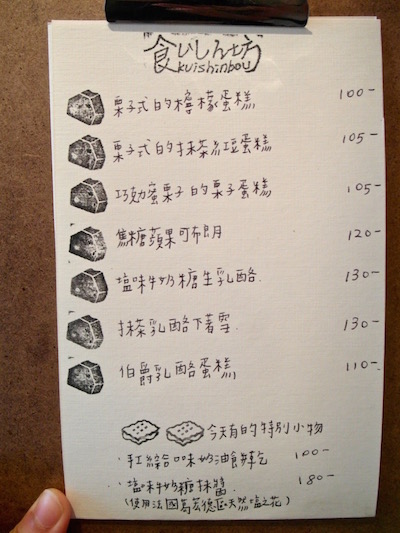 食いしん坊
kuishinbou
栗子式的檸檬蛋糕 100-
栗子式的抹茶紅豆蛋糕 105-
巧効蜜栗子的栗子蛋糕 105-
焦糖蘋果可布朗 120-
塩味牛奶糖生乳酪 130-
抹茶乳酪下著雪 130-
伯爵乳酪蛋糕 110-
今天有的特別小物
手工綜合口味奶油餅乾 100-
塩味牛奶糖抹醬 180-
(使用法國葛宏德區天然塩之花)